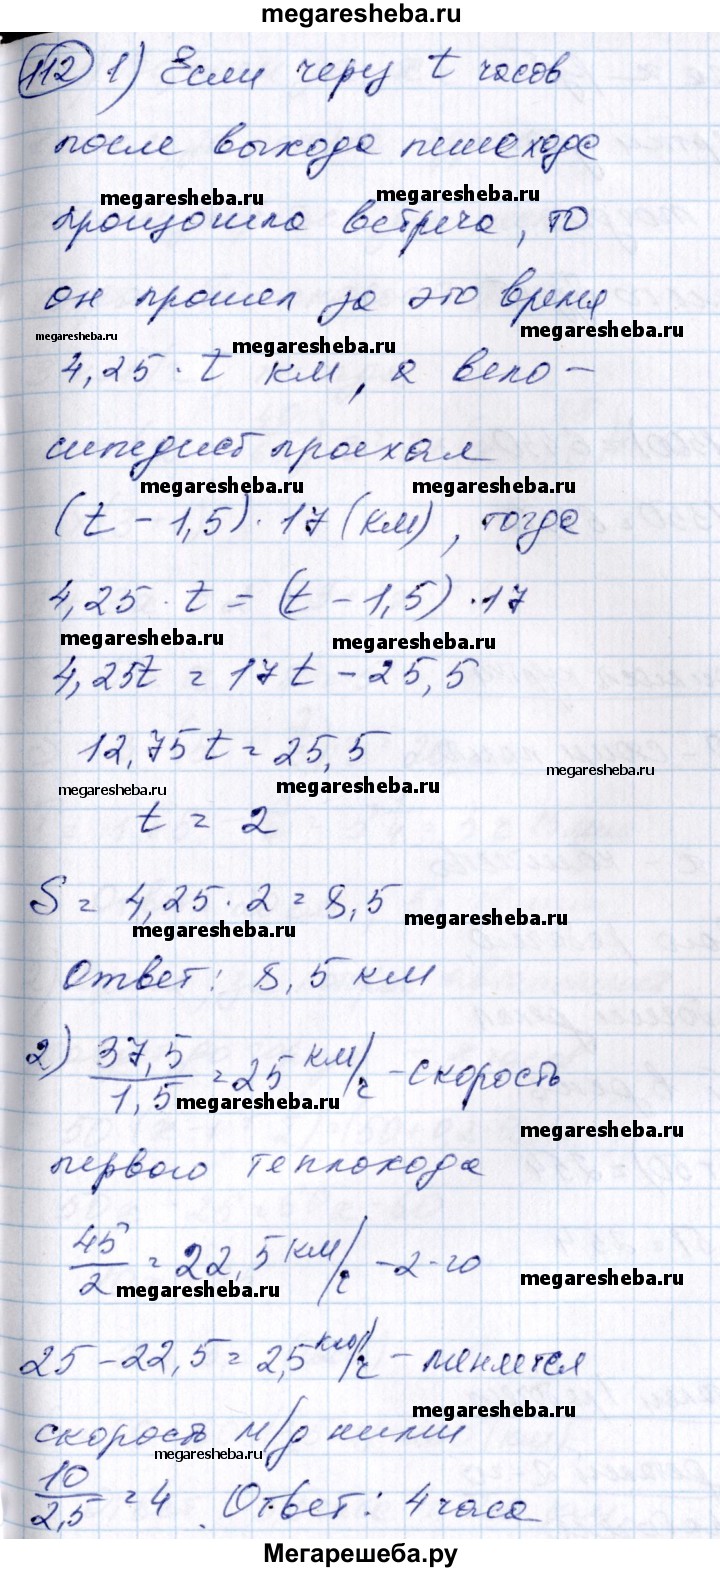 megaresheba.ru
112 1) Если через t часов
после выхода пешехода
megaresheba.ru megaresheba.ru
произошла встреча, то
он прошел за это время
megaresheba.ru megaresheba.ru megaresheba.ru
4,25 · t км, а вело-
сипедист проехал
megaresheba.ru megaresheba.ru
(t - 1,5) · 17 (км), тогда
4,25 · t = (t - 1,5) · 17
megaresheba.ru megaresheba.ru
4,25t = 17t - 25,5
12,75t = 25,5
megaresheba.ru megaresheba.ru megaresheba.ru
t = 2
S = 4,25 · 2 = 8,5
megaresheba.ru megaresheba.ru
Ответ: 8,5 км
2) 37,5/1,5 = 25 км/ч - скорость
megaresheba.ru megaresheba.ru
первого теплохода
45/2 = 22,5 км/ч - 2-го
megaresheba.ru megaresheba.ru
25 - 22,5 = 2,5 км/ч - меняется
megaresheba.ru
скорость м/д ними
megaresheba.ru
10/2,5 = 4. Ответ: 4 часа
megaresheba.ru
Мегарешеба.ру